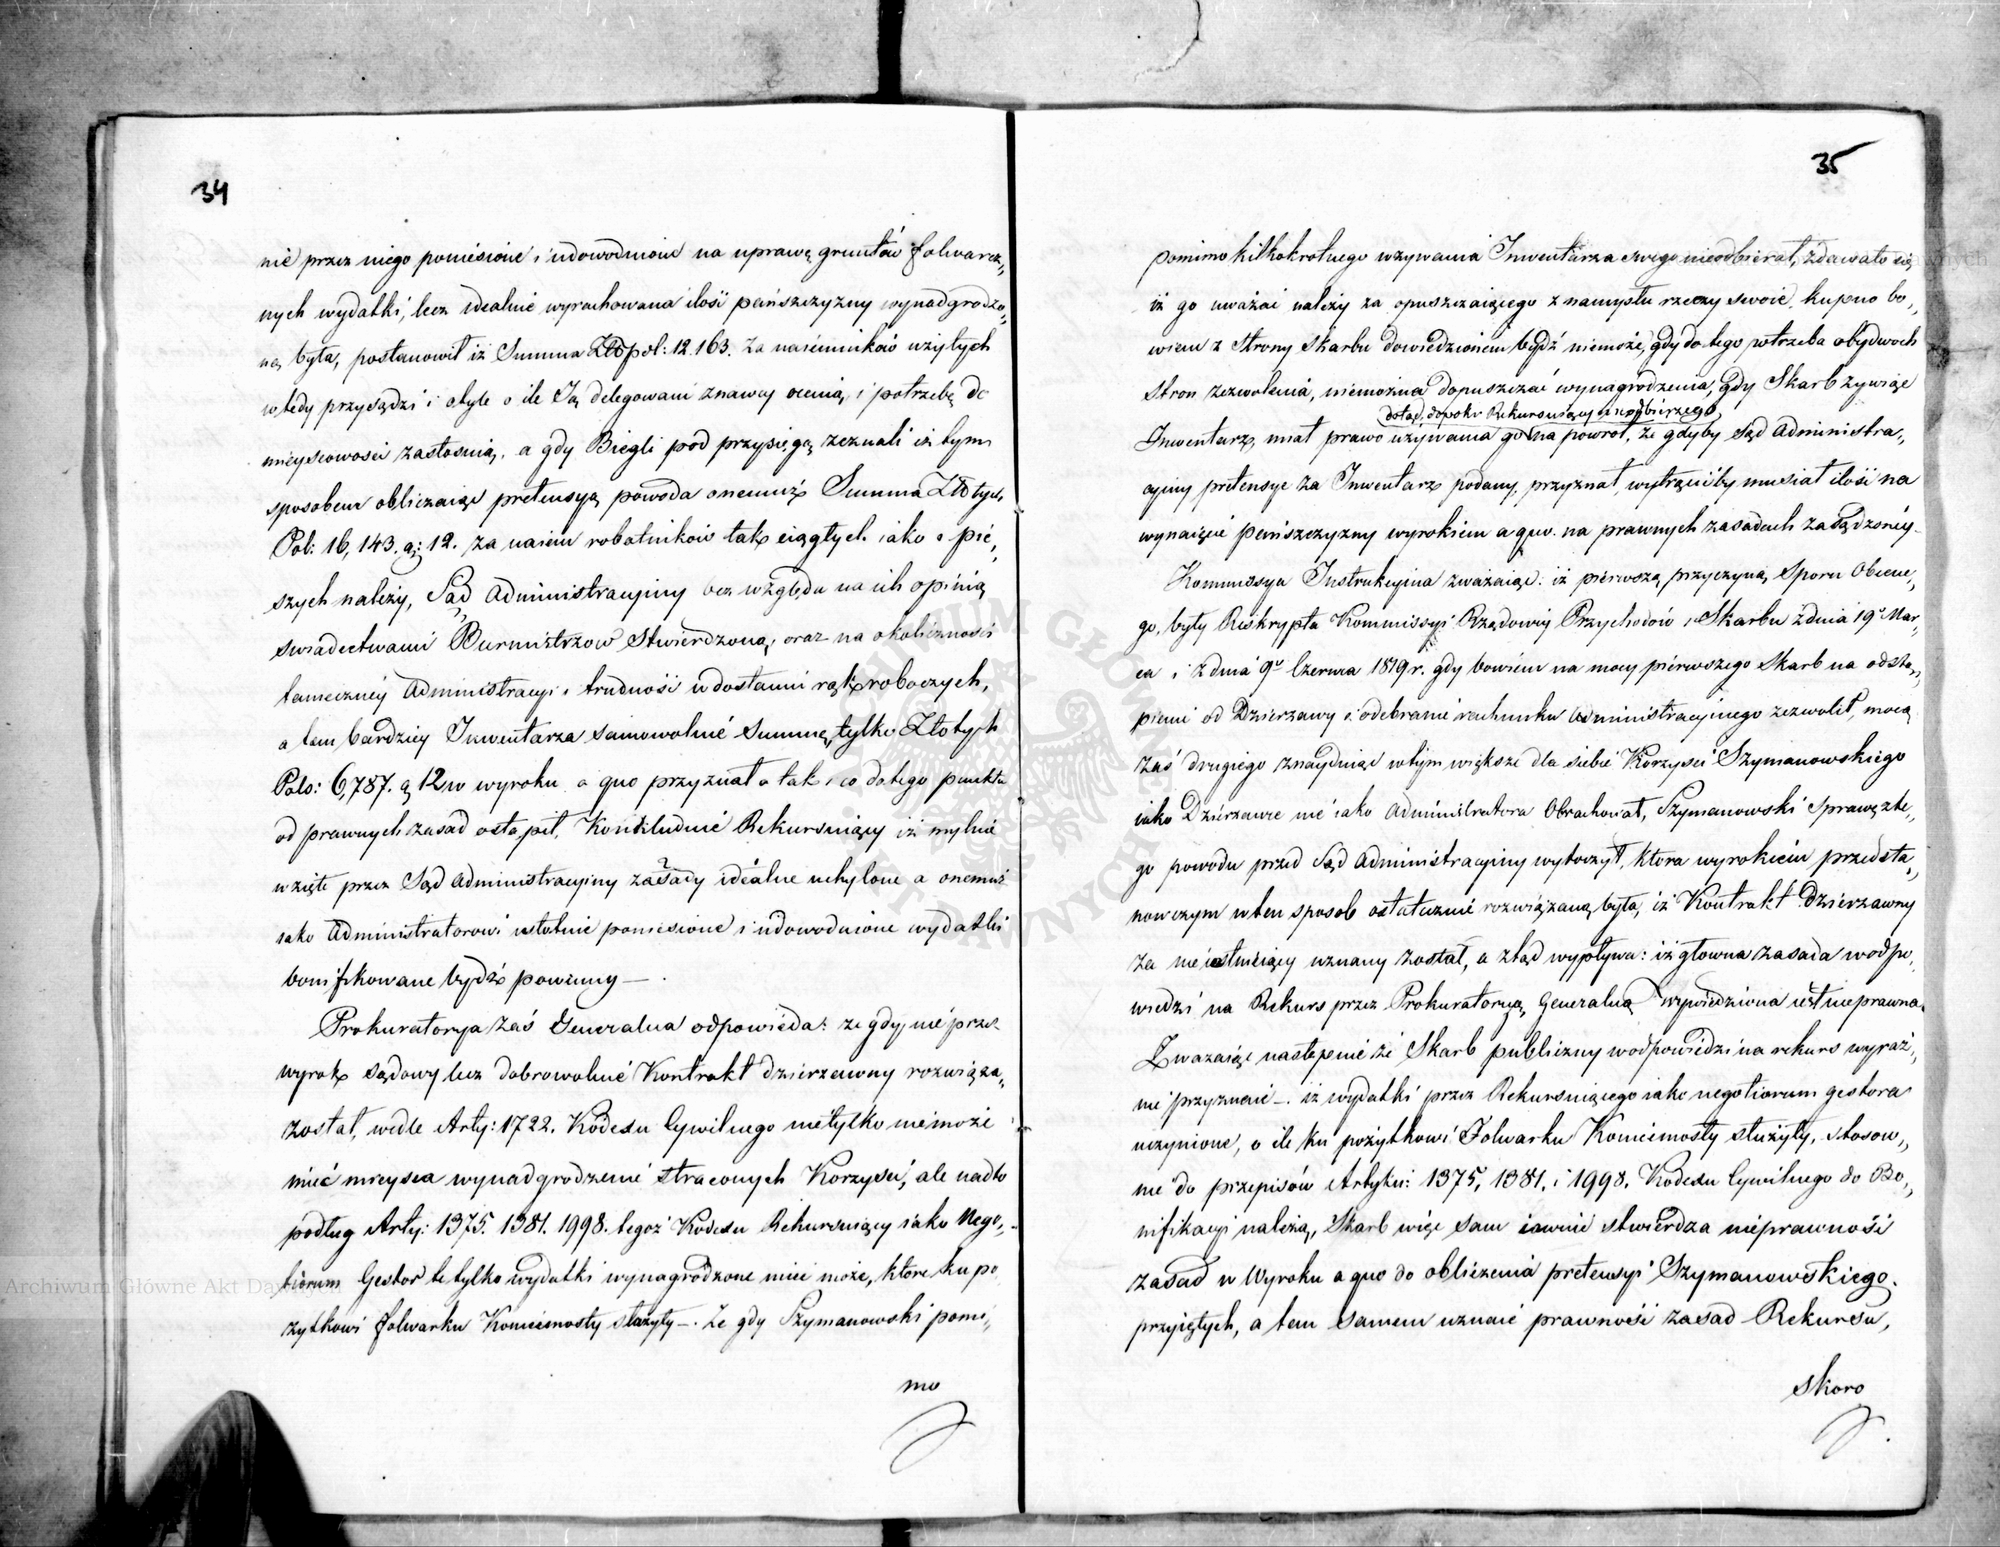 34
nie przez niego poniesione i udowodnione na uprawę gruntów folwarcz„
nych wydatki, lecz idealnie wyrachowana ilość pańszczyzny wynadgrodzo„
ną była, postanowił iż Summa Złłpol: 12.163. za naiemników użytych
wtedy przysądzi i otyle o ile Ją delegowani znawcy ocenią, i potrzebę do
mieyscowości zastosuią, a gdy Biegli pod przysięgą zeznali iż tym
sposobem obliczaiąc pretensyą powoda onemuż Summa Złłotych
Pol: 16,143. g: 12. za naiem robotników tak ciągłych iako i pie„
szych należy, Sąd Administracyiny bez względu na ich opinią
swiadectwami Burmistrzow stwierdzoną, oraz na okoliczności
tameczney Administracyi i trudność w dostaniu rąk roboczych,
a tem bardziey Inwentarza samowolnie Summę tylko Złotych
Pols: 6,787. g 12 w wyroku a quo przyznał a tak i co do tego punktu
od prawnych zasad odstąpił, Konkluduie Rekursuiący iż mylnie
wzięte przez Sąd Administracyiny zasady idealne uchylone a onemuż
iako Administratorowi istotnie poniesione i udowodnione wydatki
bonifikowane bydź powinny —.
Prokuratorya zaś Generalna odpowieda: że gdy nie przez
wyrok sądowy lecz dobrowolnie Kontrakt dzierżawny rozwiąza„
został, wedle Arty: 1722. Kodexu Cywilnego nietylko niemoże
mieć mieysca wynadgrodzenie straconych Korzyści, ale nadto
podług Arty: 1375. 1381. 1998. tegoż Kodexu Rekursuiący iako Nego„
tiorum Gestor te tylko wydatki wynagrodzone mieć może, które ku po
żytkowi folwarku Koniemosty służyły —. Że gdy Szymanowski pomi„
mo
35
pomimo kilkokrotnego wzywania Inwentarza swego nieodbierał, zdawało się
iż go uważać należy za opuszczaiącego z namysłu rzeczy swoie, kupno bo„
wiem z Strony Skarbu dowiedzionem bydź niemoże, gdy do tego potrzeba obydwoch
Stron zezwolenia, niemożna dopuszczać wynagrodzenia, gdy Skarb żywiąc
dotąd, dopoki Rekursuiący nieodbierze go,
Inwentarz, miał prawo używania go na powrot, że gdyby sąd Administra„
cyiny pretensye za Inwentarz podany, przyznał, wytrącićby musiał ilość na
wynaięcie pańszczyzny wyrokiem a quo. na prawnych zasadach zasądzoney.
Kommissya Instrukcyina zważaiąc: iż pierwszą przyczyną Sporu Obecne„
go, były Reskrypta Kommissyi Rządowey Przychodów i Skarbu z dnia 19o Mar„
ca i z dnia 9o Czerwca 1819 r. gdy bowiem na mocy pierwszego Skarb na odstą„
pienie od Dzierzawy i odebranie rachunku administracyinego zezwolił, mocą
zaś drugiego znayduiąc w tym większe dla siebie Korzyści Szymanowskiego
iako Dzierzawcę nie iako Administratora Obrachował, Szymanowski sprawę z te„
go powodu przed Sąd Administracyiny wytoczył, ktora wyrokiem przedsta„
nowczym w ten sposob ostatecznie rozwiązaną była, iż Kontrakt Dzierzawny
za nieistnieiący uznany został, a ztąd wypływa: iż głowna zasada w odpo„
wiedzi na Rekurs przez Prokuratoryą Generalną wypowiedziona iest nieprawna.
Zwazaiąc następnie że Skarb publiczny w odpowiedzi na rekurs wyraź„
nie przyznaie —. iż wydatki przez Rekursuiącego iako negotiorum gestora
uczynione, o ile ku pożytkowi Folwarku Koniemosty służyły, stosow„
nie do przepisów Artyku: 1375, 1381. i 1998. Kodexu Cywilnego do Bo„
nifikacyi należą, Skarb więc sam iawnie stwierdza nieprawność
zasad w Wyroku a quo do obliczenia pretensyi Szymanowskiego.
przyiętych, a tem samem uznaie prawność zasad Rekursu,
skoro
Archiwum Główne Akt Dawnych